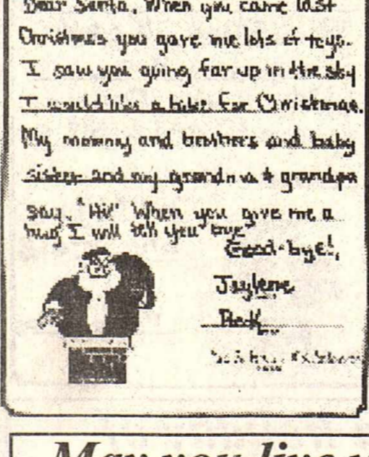 Dear Santa, When you came last
Christmas you gave me lots of toys.
I saw you going far up in the sky
I would like a bike for Christmas.
My mommy and brothers and baby
sister and my grandma & grandpa
say, "Hi!" When you give me a
hug I will tell you "bye"
Good-bye!,
Jaylene
May you live